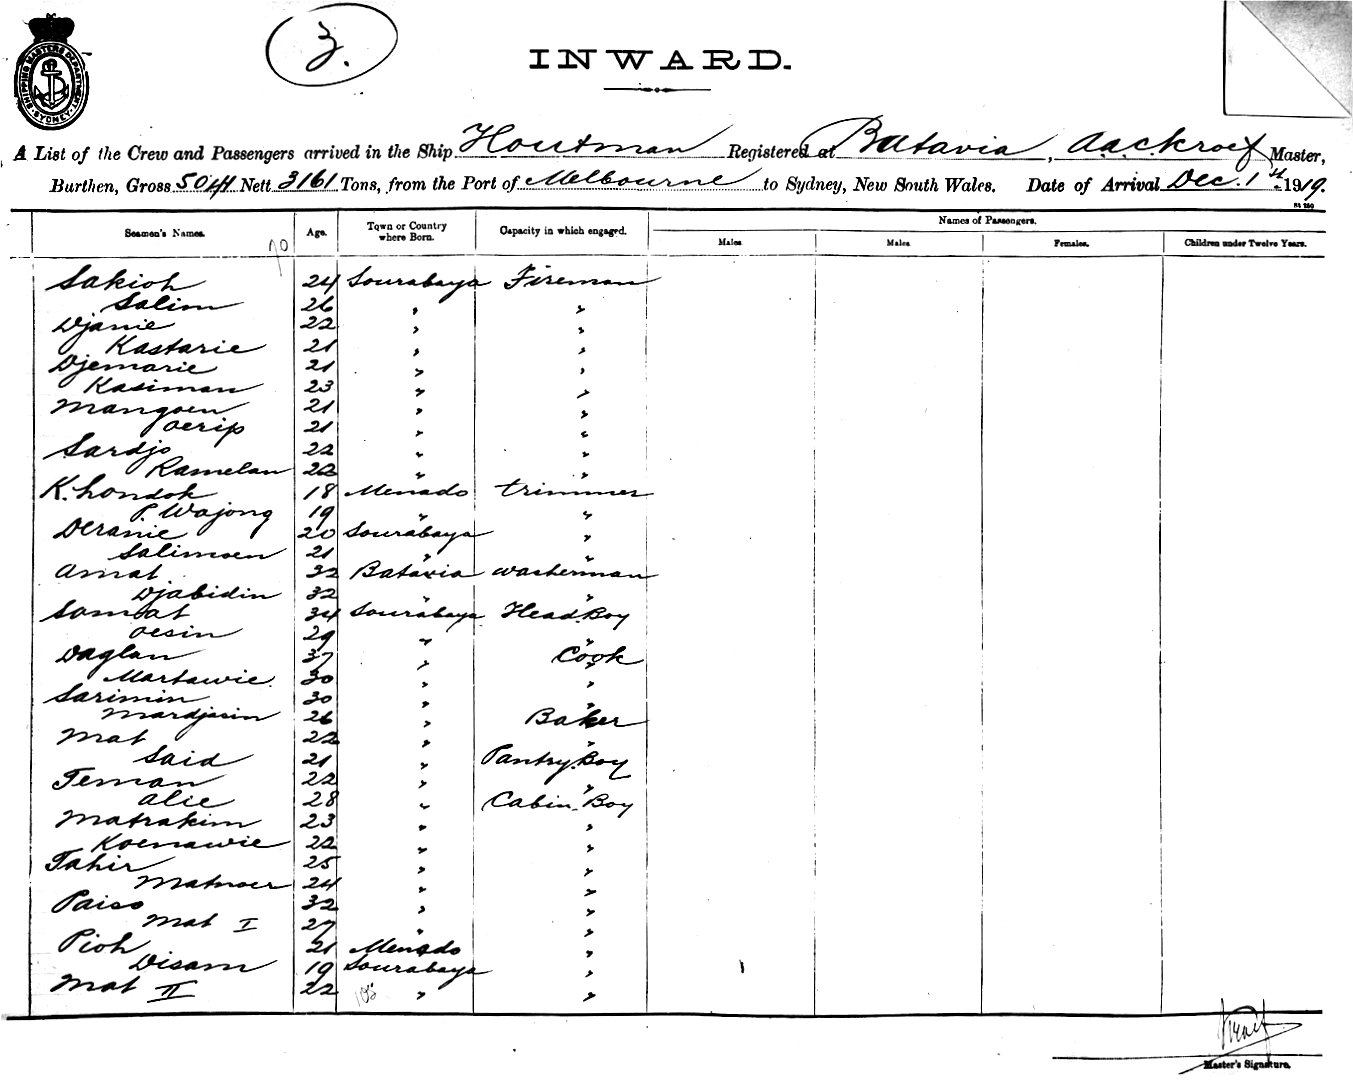 3.
SHIPPING MASTERS DEPARTMENT
SYDNEY
INWARD.
A List of the Crew and Passengers arrived in the Ship Houtman Registered at Batavia, Master,
Burthen, Gross 5041 Nett 3161 Tons, from the Port of Melbourne to Sydney, New South Wales. Date of Arrival Dec. 1st 1919.
Seamen's Names. Age. Town or Country where Born. Capacity in which engaged. Names of Passengers.
Males. Males. Females. Children under Twelve Years.
Sakioh 24 Sourabaya Fireman
Salim 26 " "
Djanie 22 " "
Kastarie 21 " "
Djemarie 21 " "
Kasiman 23 " "
Mangoen 21 " "
Oerip 21 " "
Sardjo 22 " "
Ramelan 22 " "
K. Londok 18 Menado trimmer
P. Wajong 19 " "
Deranie 20 Sourabaya "
Salimoen 21 " "
Amat 32 Batavia washerman
Djabidin 32 " "
Somat 34 Sourabaya Head Boy
Oesin 29 " "
Daglan 37 " Cook
Martawie 30 " "
Sarimin 30 " "
Mardjasin 26 " Baker
Mat 22 " "
Said 21 " Pantry Boy
Teman 22 " "
Alie 28 " Cabin Boy
Matrakim 23 " "
Koenawie 22 " "
Tahir 25 " "
Matnoer 24 " "
Paiso 32 " "
Mat I 27 " "
Pioh 21 Menado "
Disam 19 Sourabaya "
Mat II 22 " "
Master's Signature.